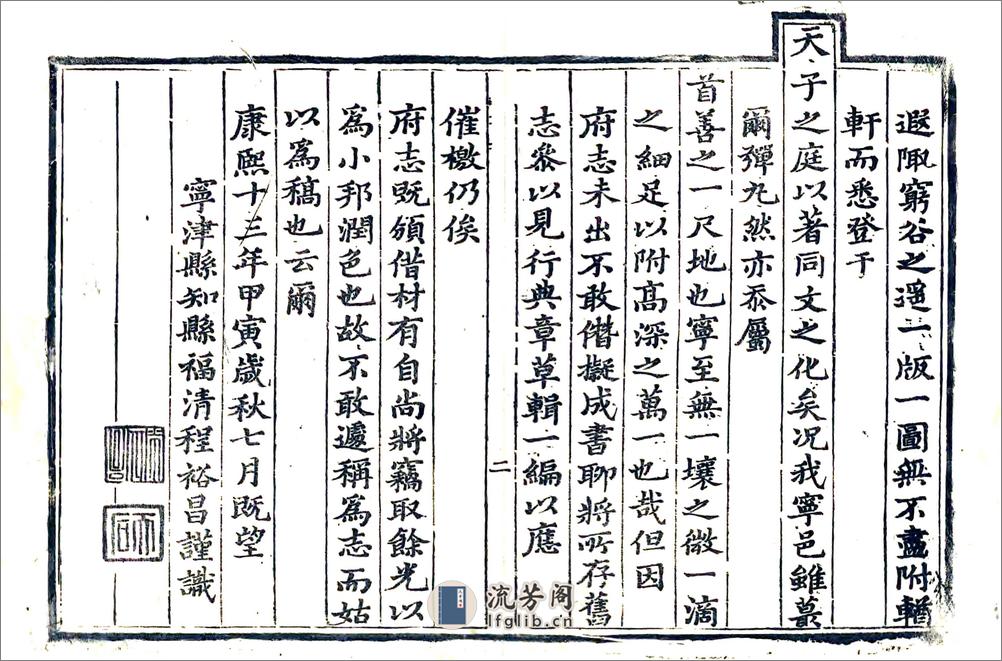 遐陬窮谷之遥一版一圖無不盡附輶
軒而悉登于
天子之庭以著同文之化矣况我寧邑雖蕞
爾彈丸然亦忝屬
首善之一尺地也寧至無一壤之微一滴
之細足以附高深之萬一也哉但因
府志未出不敢僭擬成書聊將所存舊
志叅以見行典章草輯一編以應
二
催檄仍俟
府志既頒借材有自尚將竊取餘光以
爲小邦潤色也故不敢遽稱爲志而姑
以爲稿也云爾
康熙十三年甲寅歲秋七月既望
寧津縣知縣福清程裕昌謹識
流芳阁
lfglib.cn